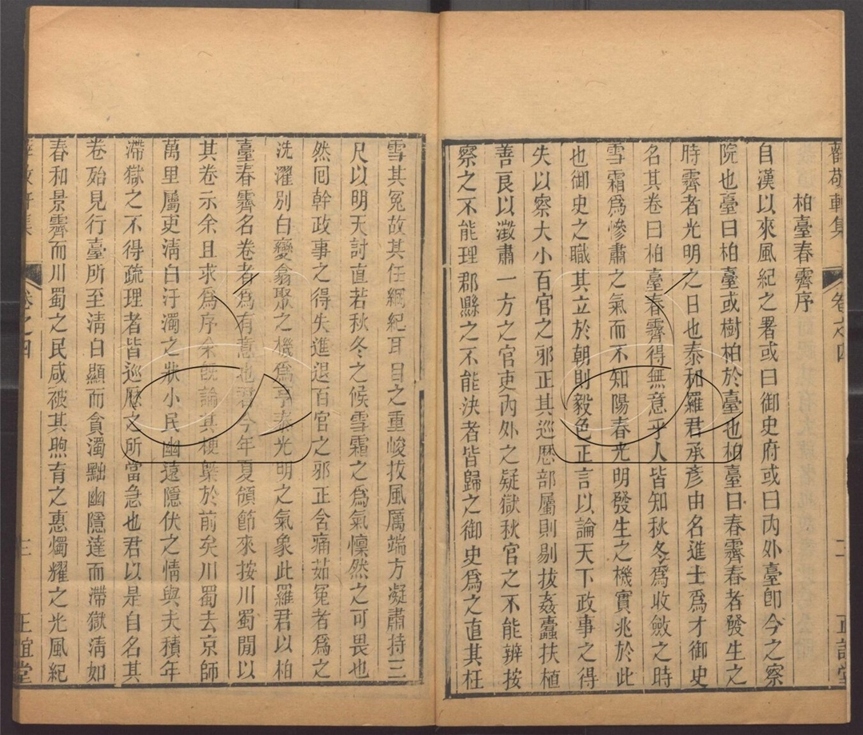 薛敬軒集 卷之四 二 正誼堂
柏臺春霽序
自漢以來風紀之署或曰御史府或曰內外臺卽今之察
院也臺曰柏臺或樹柏於臺也柏臺曰春霽春者發生之
時霽者光明之日也泰和羅君承彥由名進士爲才御史
名其卷曰柏臺春霽得無意乎人皆知秋冬爲收斂之時
雪霜爲慘肅之氣而不知陽春光明發生之機實兆於此
也御史之職其立於朝則毅色正言以論天下政事之得
失以察大小百官之邪正其巡歷部屬則剔拔姦蠹扶植
善良以澂肅一方之官吏內外之疑獄秋官之不能辨按
察之不能理郡縣之不能決者皆歸之御史爲之直其枉
雪其冤故其任綱紀耳目之重峻拔風厲端方凝肅持三
尺以明天討直若秋冬之候雪霜之爲氣懍然之可畏也
然囘幹政事之得失進退百官之邪正含痛茹冤者爲之
洗濯別白變翕聚之機爲亨泰光明之氣象此羅君以柏
臺春霽名卷者爲有意也君今年夏領節來按川蜀閒以
其卷示余且求爲序余旣論其梗槩於前矣川蜀去京師
萬里屬吏淸白汙濁之狀小民幽遠隱伏之情與夫積年
滯獄之不得疏理者皆巡歷之所當急也君以是自名其
卷殆見行臺所至淸白顯而貪濁黜幽隱達而滯獄淸如
春和景霽而川蜀之民咸被其煦育之惠燭耀之光風紀
薛敬軒集 卷之四 三 正誼堂